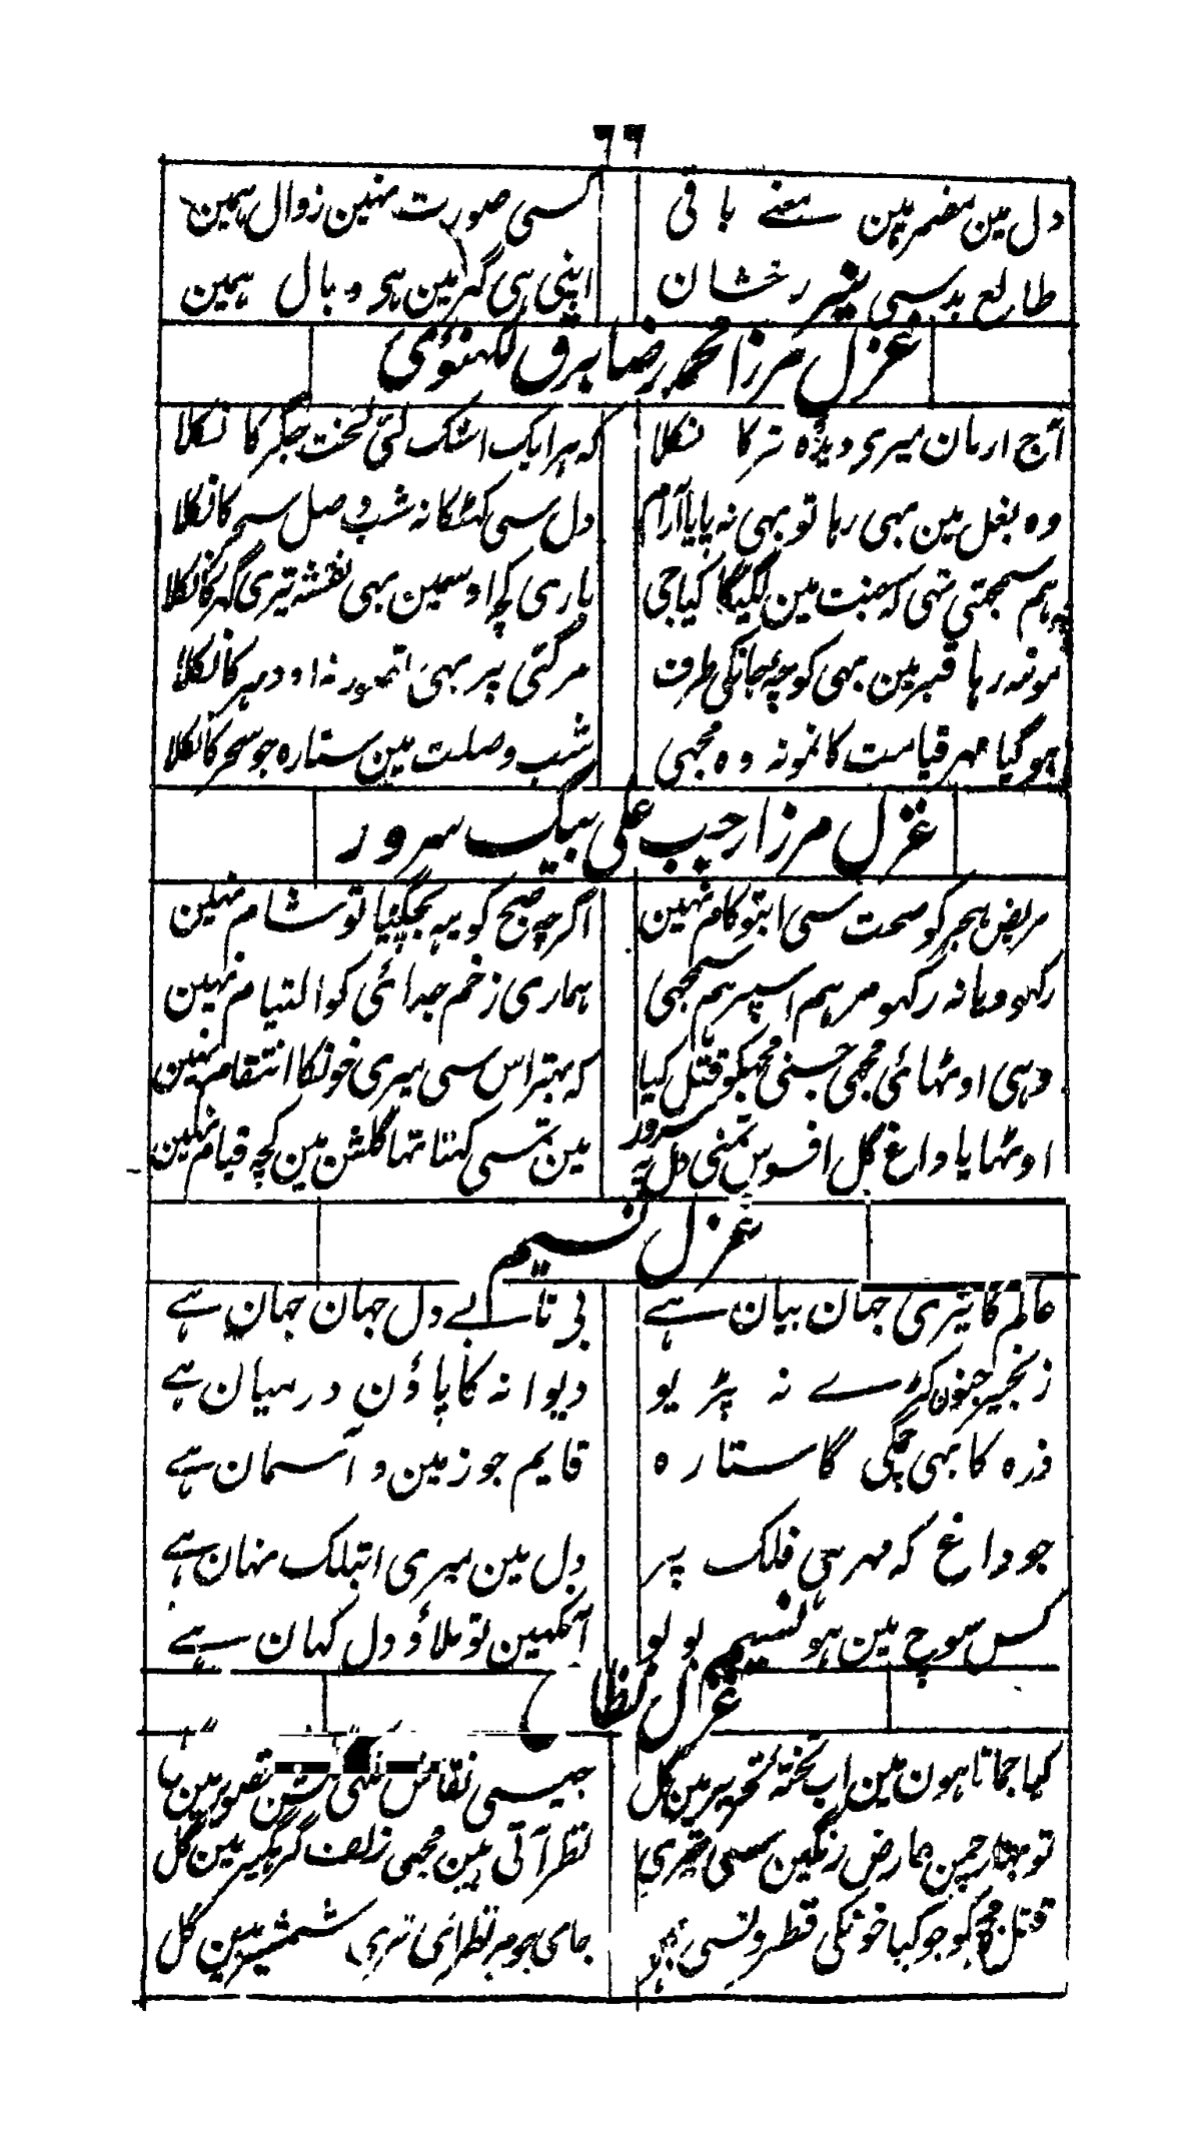 ٦٦
دل مین مضمر ہین سخے باقی
کسی صورت نہین زوال ہمین
طالع بد سی نیر رخشان
اپنی ہی گہر مین ہو وبال ہمین
غزل مرزا محمد رضا برق لکہنوٗی
آج ارمان میری دیدۂ تر کا نکلا
کہ ہر ایک اشک لئی لخت جگر کا نکلا
وہ بغل مین بہی رہا تو بہی نہ پایا آرام
دل سی کہٹکا نہ شب وصل سحر کا نکلا
ہم سمجہتی تہی کہ جنت مین لگیگا کیا جی
باری کچہ اوسمین بہی نقشہ تیری گہر کا نکلا
مونہ رہا قبر مین بہی کوچہ جانکی طرف
مر گئی پر بہی نہ اودہر کا نکلا
ہو گیا مہر قیامت کا نمونہ وہ مجہی
شب وصلت مین ستارہ جو سحر کا نکلا
غزل مرزا رجب علی بیگ سرور
مریض ہجر کو صحت سی ابتو کام نہین
اگرچہ صبح کو یہ بچگیا تو شام نہین
رکہو ویا نہ رکہو مرہم اسپر ہم سمجہی
ہماری زخم جدائی کو التیام نہین
وہی اوٹہائی مجہی جسنی مجہکو قتل کیا
کہ بہتر اس سی میری خونکا انتقام نہین
اوٹہایا داغ گل افسوس تمنی دل پہ سرور
مین تمسی کہتا تہا گلشن مین کچہ قیام نہین
غزل نسیم
عالم کا تیری جہان بیان ہے
بی تابے دل جہان جہان ہے
زنجیر جنون کڑے نہ پڑیو
دیوانہ کا پاؤن درمیان ہے
ذرہ کا بہی چمکی گا ستارہ
قایم جو زمین و آسمان ہے
جو داغ کہ مہر ہی فلک پر
دل مین میری ابتلک نہان ہے
کس سوچ مین ہو نسیم بولو
آنکہین تو ملاؤ دل کہان ہے
غزل نظام
کیا جماتا ہون مین اب تختہ تحریر مین گل
جیسی نقاش تصویر مین
تو بہار چمن عارض رنگین سی
نظر آتی ہین مجہی زلف گرہگیر مین گل
قتل مجہکو جو کیا خونکی قطرونسی
جای جوہر نظر آئی تری شمشیر مین گل